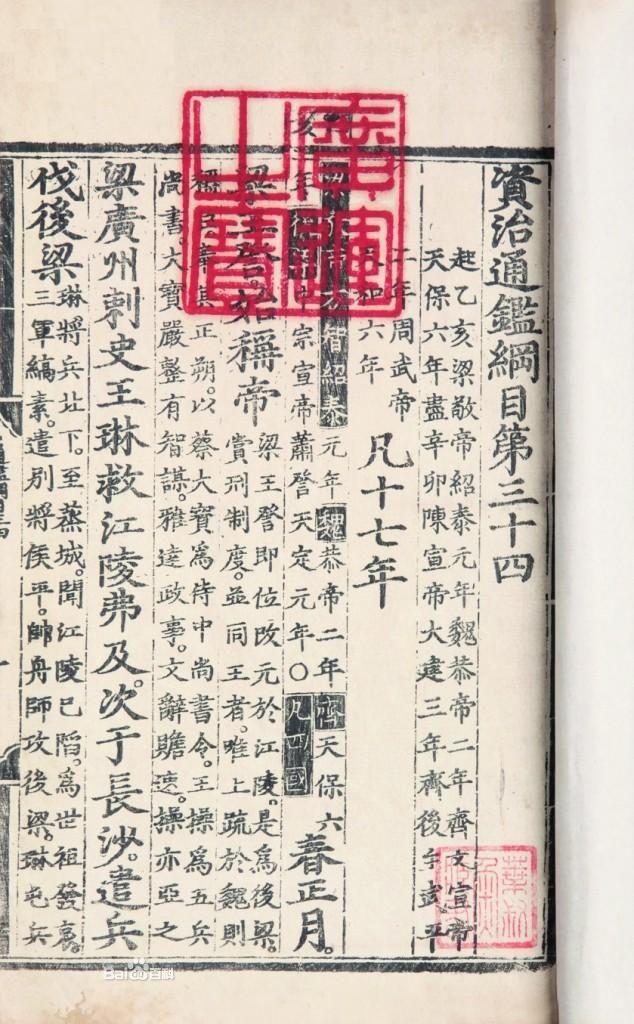 資治通鑑綱目第三十四
起乙亥梁敬帝紹泰元年魏恭帝二年齊文宣帝
天保六年盡辛卯陳宣帝大建三年齊後主武平
二年周武帝
天和六年
凡十七年
亥
智紹泰元年魏恭帝二年齊天保六
年後梁中宗宣帝蕭詧天定元年〇凡四國
春正月。
梁王詧始稱帝
梁王詧即位改元於江陵。是爲後梁。
賞刑制度。並同王者。唯上疏於魏則
稱臣奉其正朔。以蔡大寶爲侍中尚書令。王操爲五兵
尚書。大寶嚴整有智謀。雅達政事。文辭贍速。操亦亞之
梁廣州刺史王琳救江陵弗及。次于長沙。遣兵
伐後梁
琳將兵北下。至蒸城。聞江陵已陷。爲世祖發哀。
三軍縞素。遣別將侯平。帥舟師攻後梁。琳屯兵
廣運之寶
Baidu百科